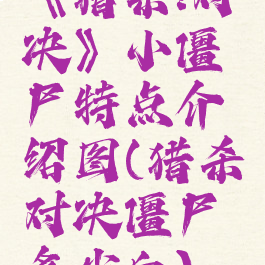 《猎杀:对
决》小僵
尸特点介
绍图(猎杀
对决僵尸